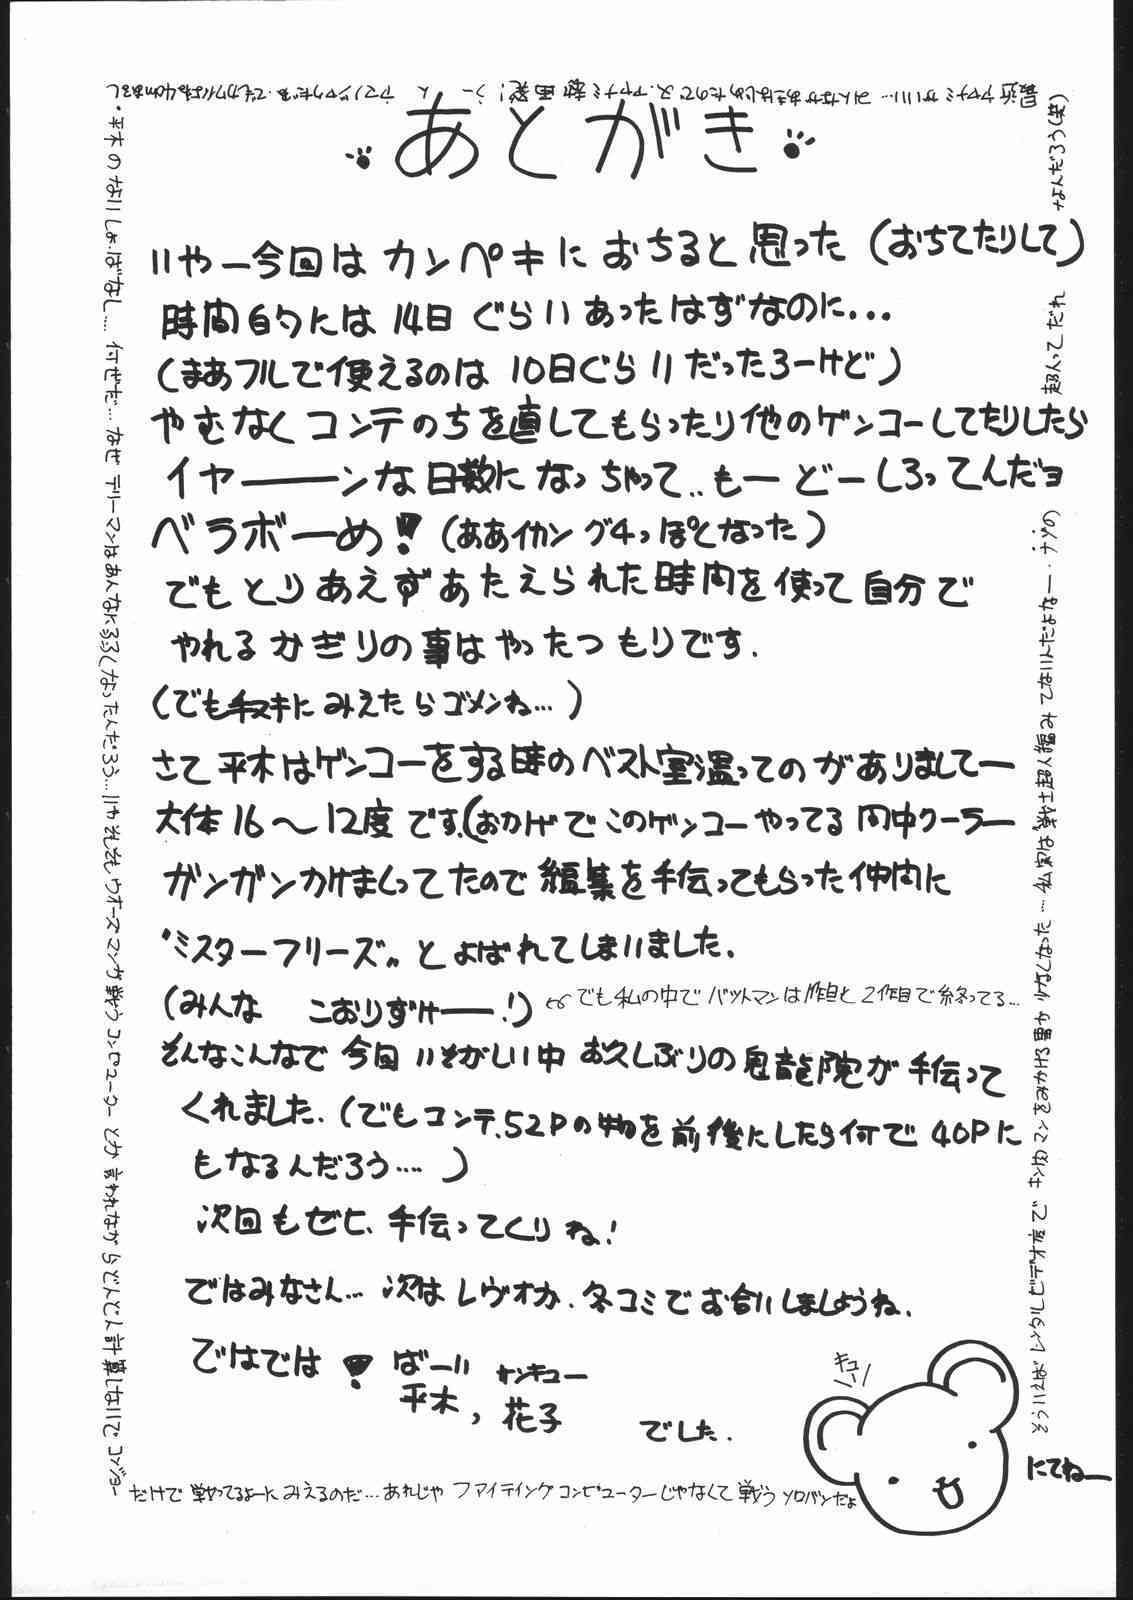 あとがき
いやー今回はカンペキにおちると思った(おちてたりして)
時間的には14日ぐらいあったはずなのに...
(まあフルで使えるのは10日ぐらいだったろーけど)
やむなくコンテのちを直してもらったり他のゲンコーしてたりしたら
イヤーーーンな日数になっちゃって..もーどーしろってんだヨ
ベラボーめ!(ああイカングチっぽくなった)
でもとりあえずあたえられた時間を使って自分で
やれるかぎりの事はやったつもりです.
(でも手ヌキにみえたらゴメンね...)
さて平木はゲンコーをする時のベスト室温ってのがありましてー
大体16〜12度です.(おかげでこのゲンコーやってる間中クーラー
ガンガンかけまくってたので編集を手伝ってもらった仲間に
"ミスターフリーズ"とよばれてしまいました.
(みんな こおりずけーー!)
でも私の中でバットマンは1作目と2作目で終ってる...
そんなこんなで今回いそがしい中お久しぶりの鬼龍院が手伝って
くれました.(でもコンテ、52Pの物を前後にしたら何で40Pに
もなるんだろう....)
次回もぜひ、手伝ってくりね!
ではみなさん...次はレヴォか、冬コミでお会いしましょうね.
ではでは! ばーい サンキュー
平木、花子 でした.
キュー
・平木のないしょばなし...何ぜだ...なぜデリーマンはあんなに
くなったんだろう...いやそもそもウォーズマンが戦うコンピューターとか言われながらどんどん計算しないで
だけで戦ってるよーにみえるのだ...あれじゃファイティングコンピューターじゃなくて戦うソロバンだよ
にてねー
そういえばレンタルビデオ店でキン肉マンをみかける事が少なくなった...私実は戦士超人編みてないんだよなー.ナゾの
超人ってだれ
なんだろう(笑)
最近アヤナミがいい...みんながあきはじめたので